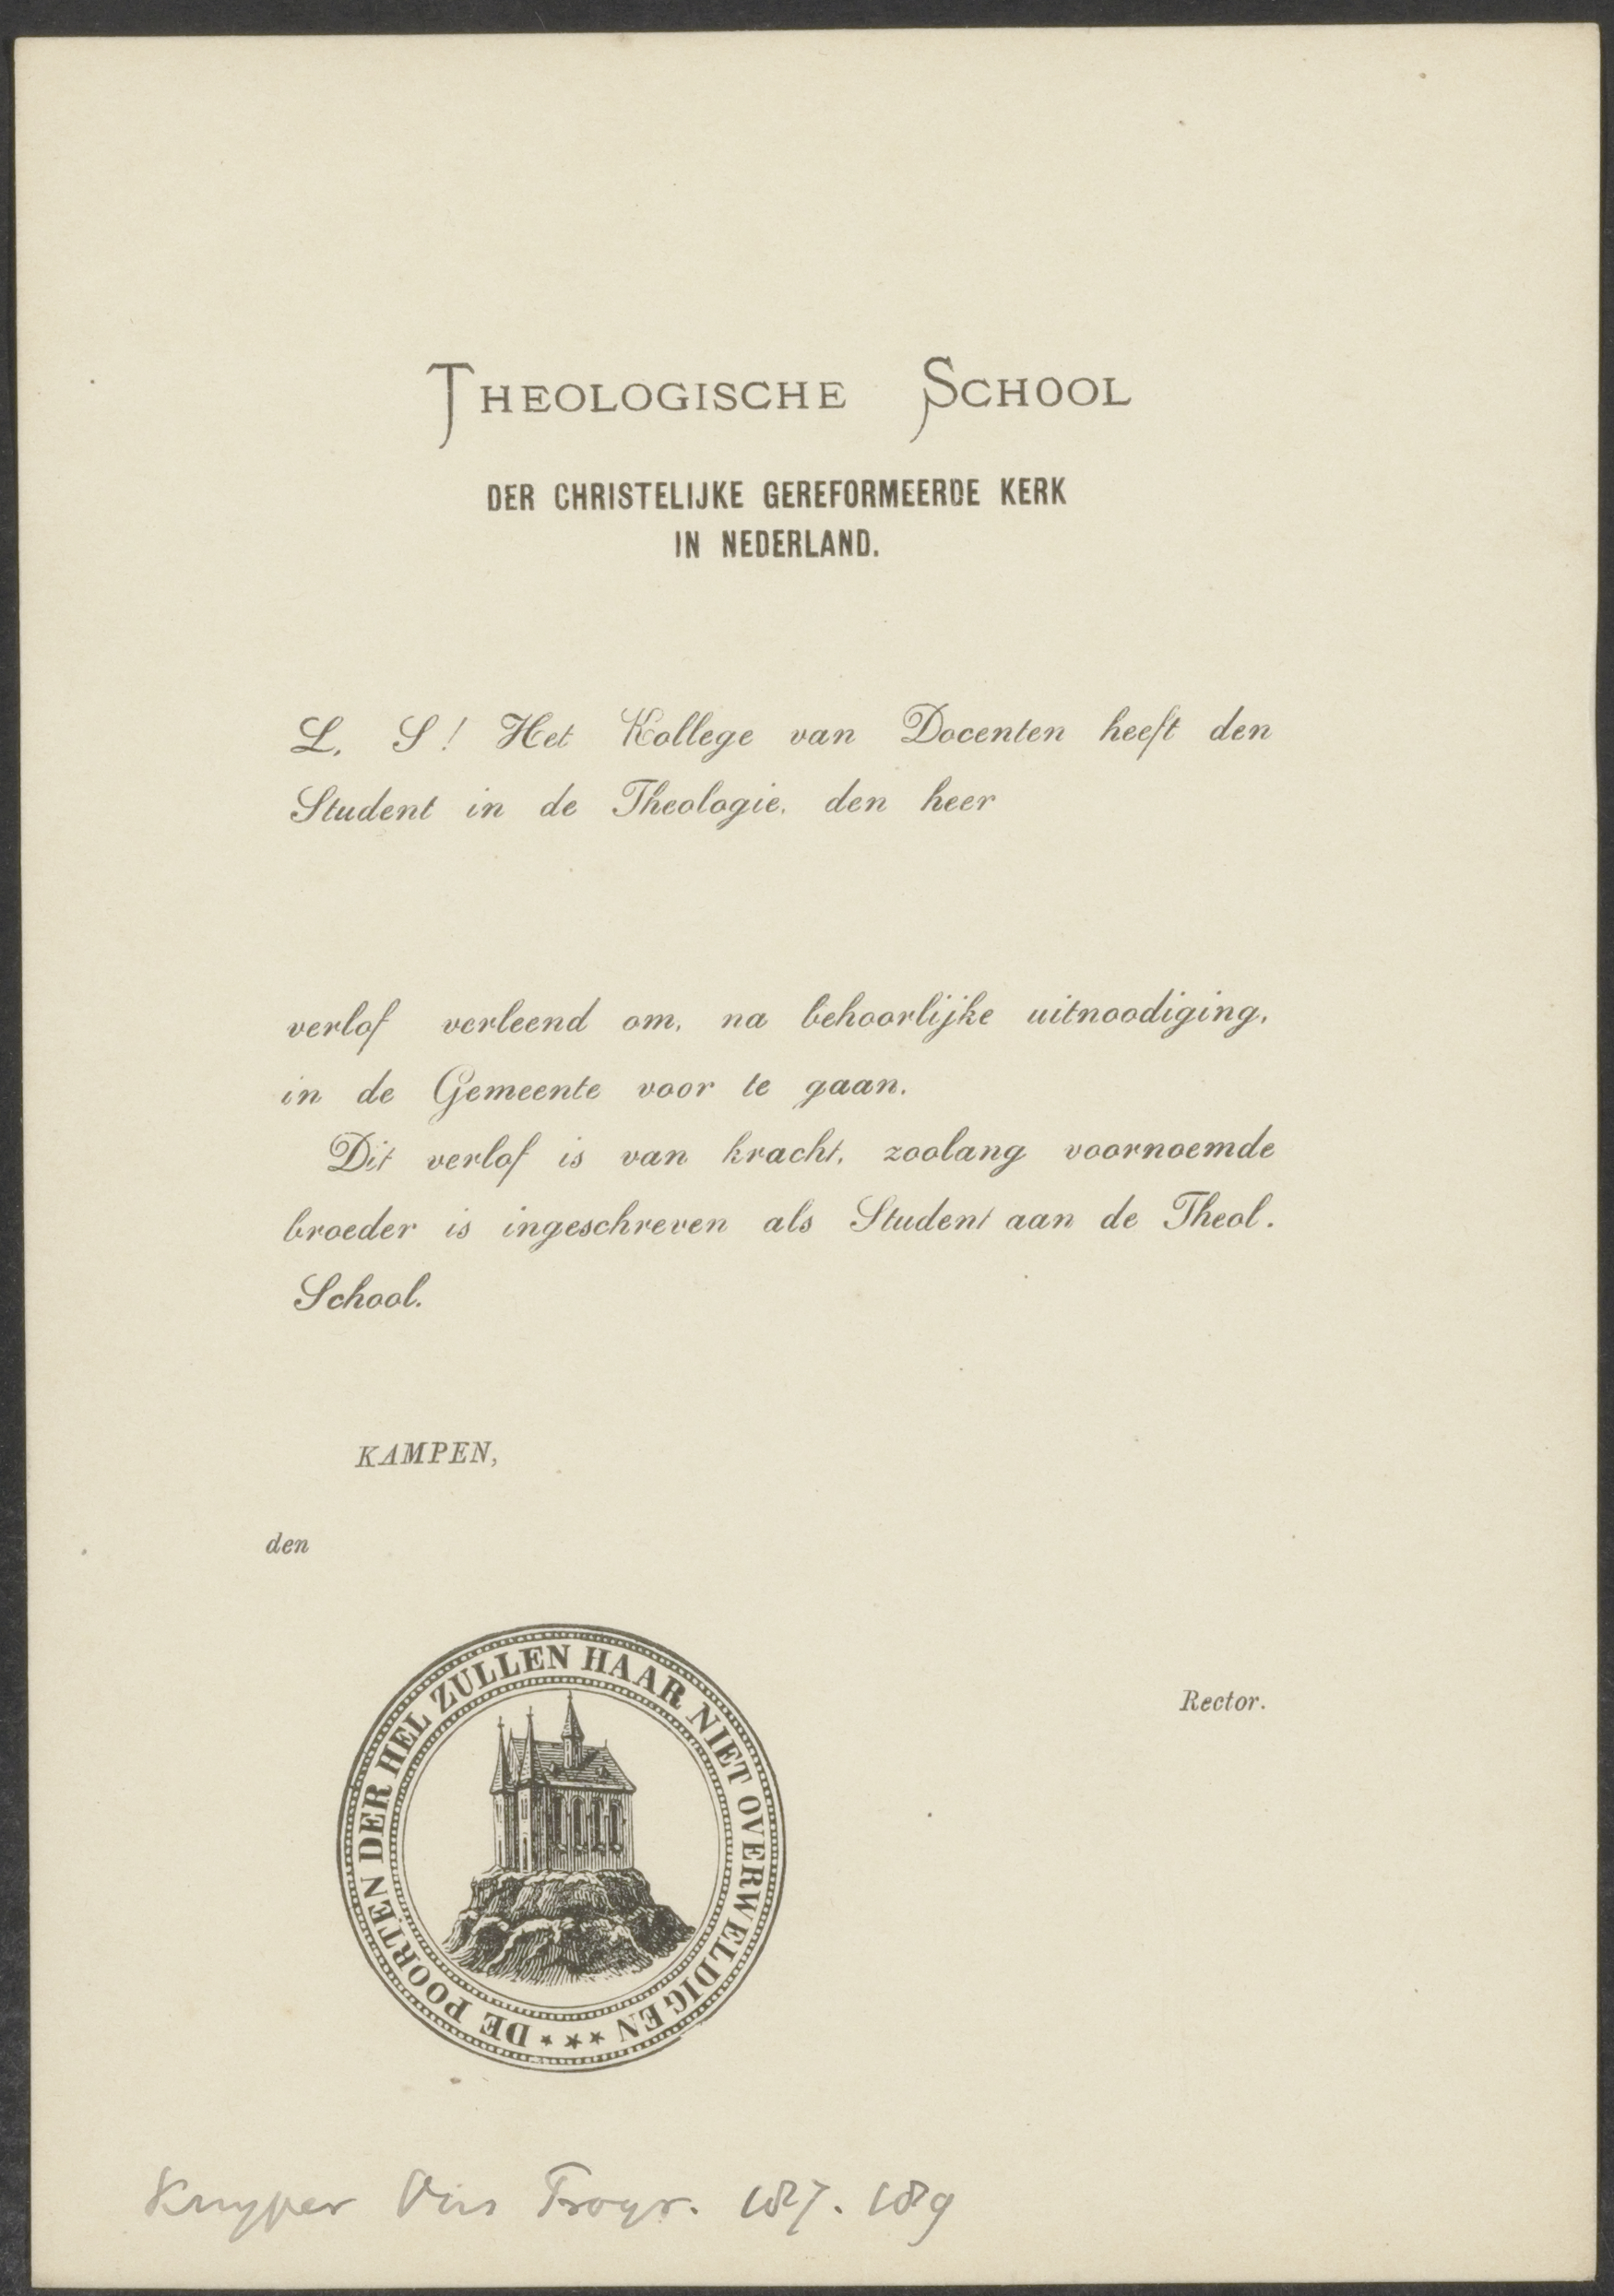 THEOLOGISCHE SCHOOL
DER CHRISTELIJKE GEREFORMEERDE KERK
IN NEDERLAND.
L. S! Het Kollege van Docenten heeft den
Student in de Theologie, den heer
verlof verleend om, na behoorlijke uitnoodiging,
in de Gemeente voor te gaan.
Dit verlof is van kracht, zoolang voornoemde
broeder is ingeschreven als Student aan de Theol.
School.
KAMPEN,
den
Rector.
DE POORTEN DER HEL ZULLEN HAAR NIET OVERWELDIGEN ***
Kuyper 187. 189